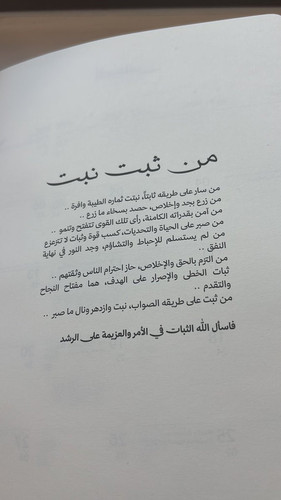 من ثبت نبت
من سار على طريقه ثابتاً، نبتت ثماره الطيبة وافرة ..
من زرع بجد وإخلاص، حصد بسخاء ما زرع ..
من آمن بقدراته الكامنة، رأى تلك القوى تتفتح وتنمو ..
من صبر على الحياة والتحديات، كسب قوة وثبات لا تتزعزع
من لم يستسلم للإحباط والتشاؤم، وجد النور في نهاية
النفق ..
من التزم بالحق والإخلاص، حاز احترام الناس وثقتهم ..
ثبات الخطى والإصرار على الهدف، هما مفتاح النجاح
والتقدم ..
من ثبت على طريقه الصواب، نبت وازدهر ونال ما صبر ..
فاسأل الله الثبات في الأمر والعزيمة على الرشد